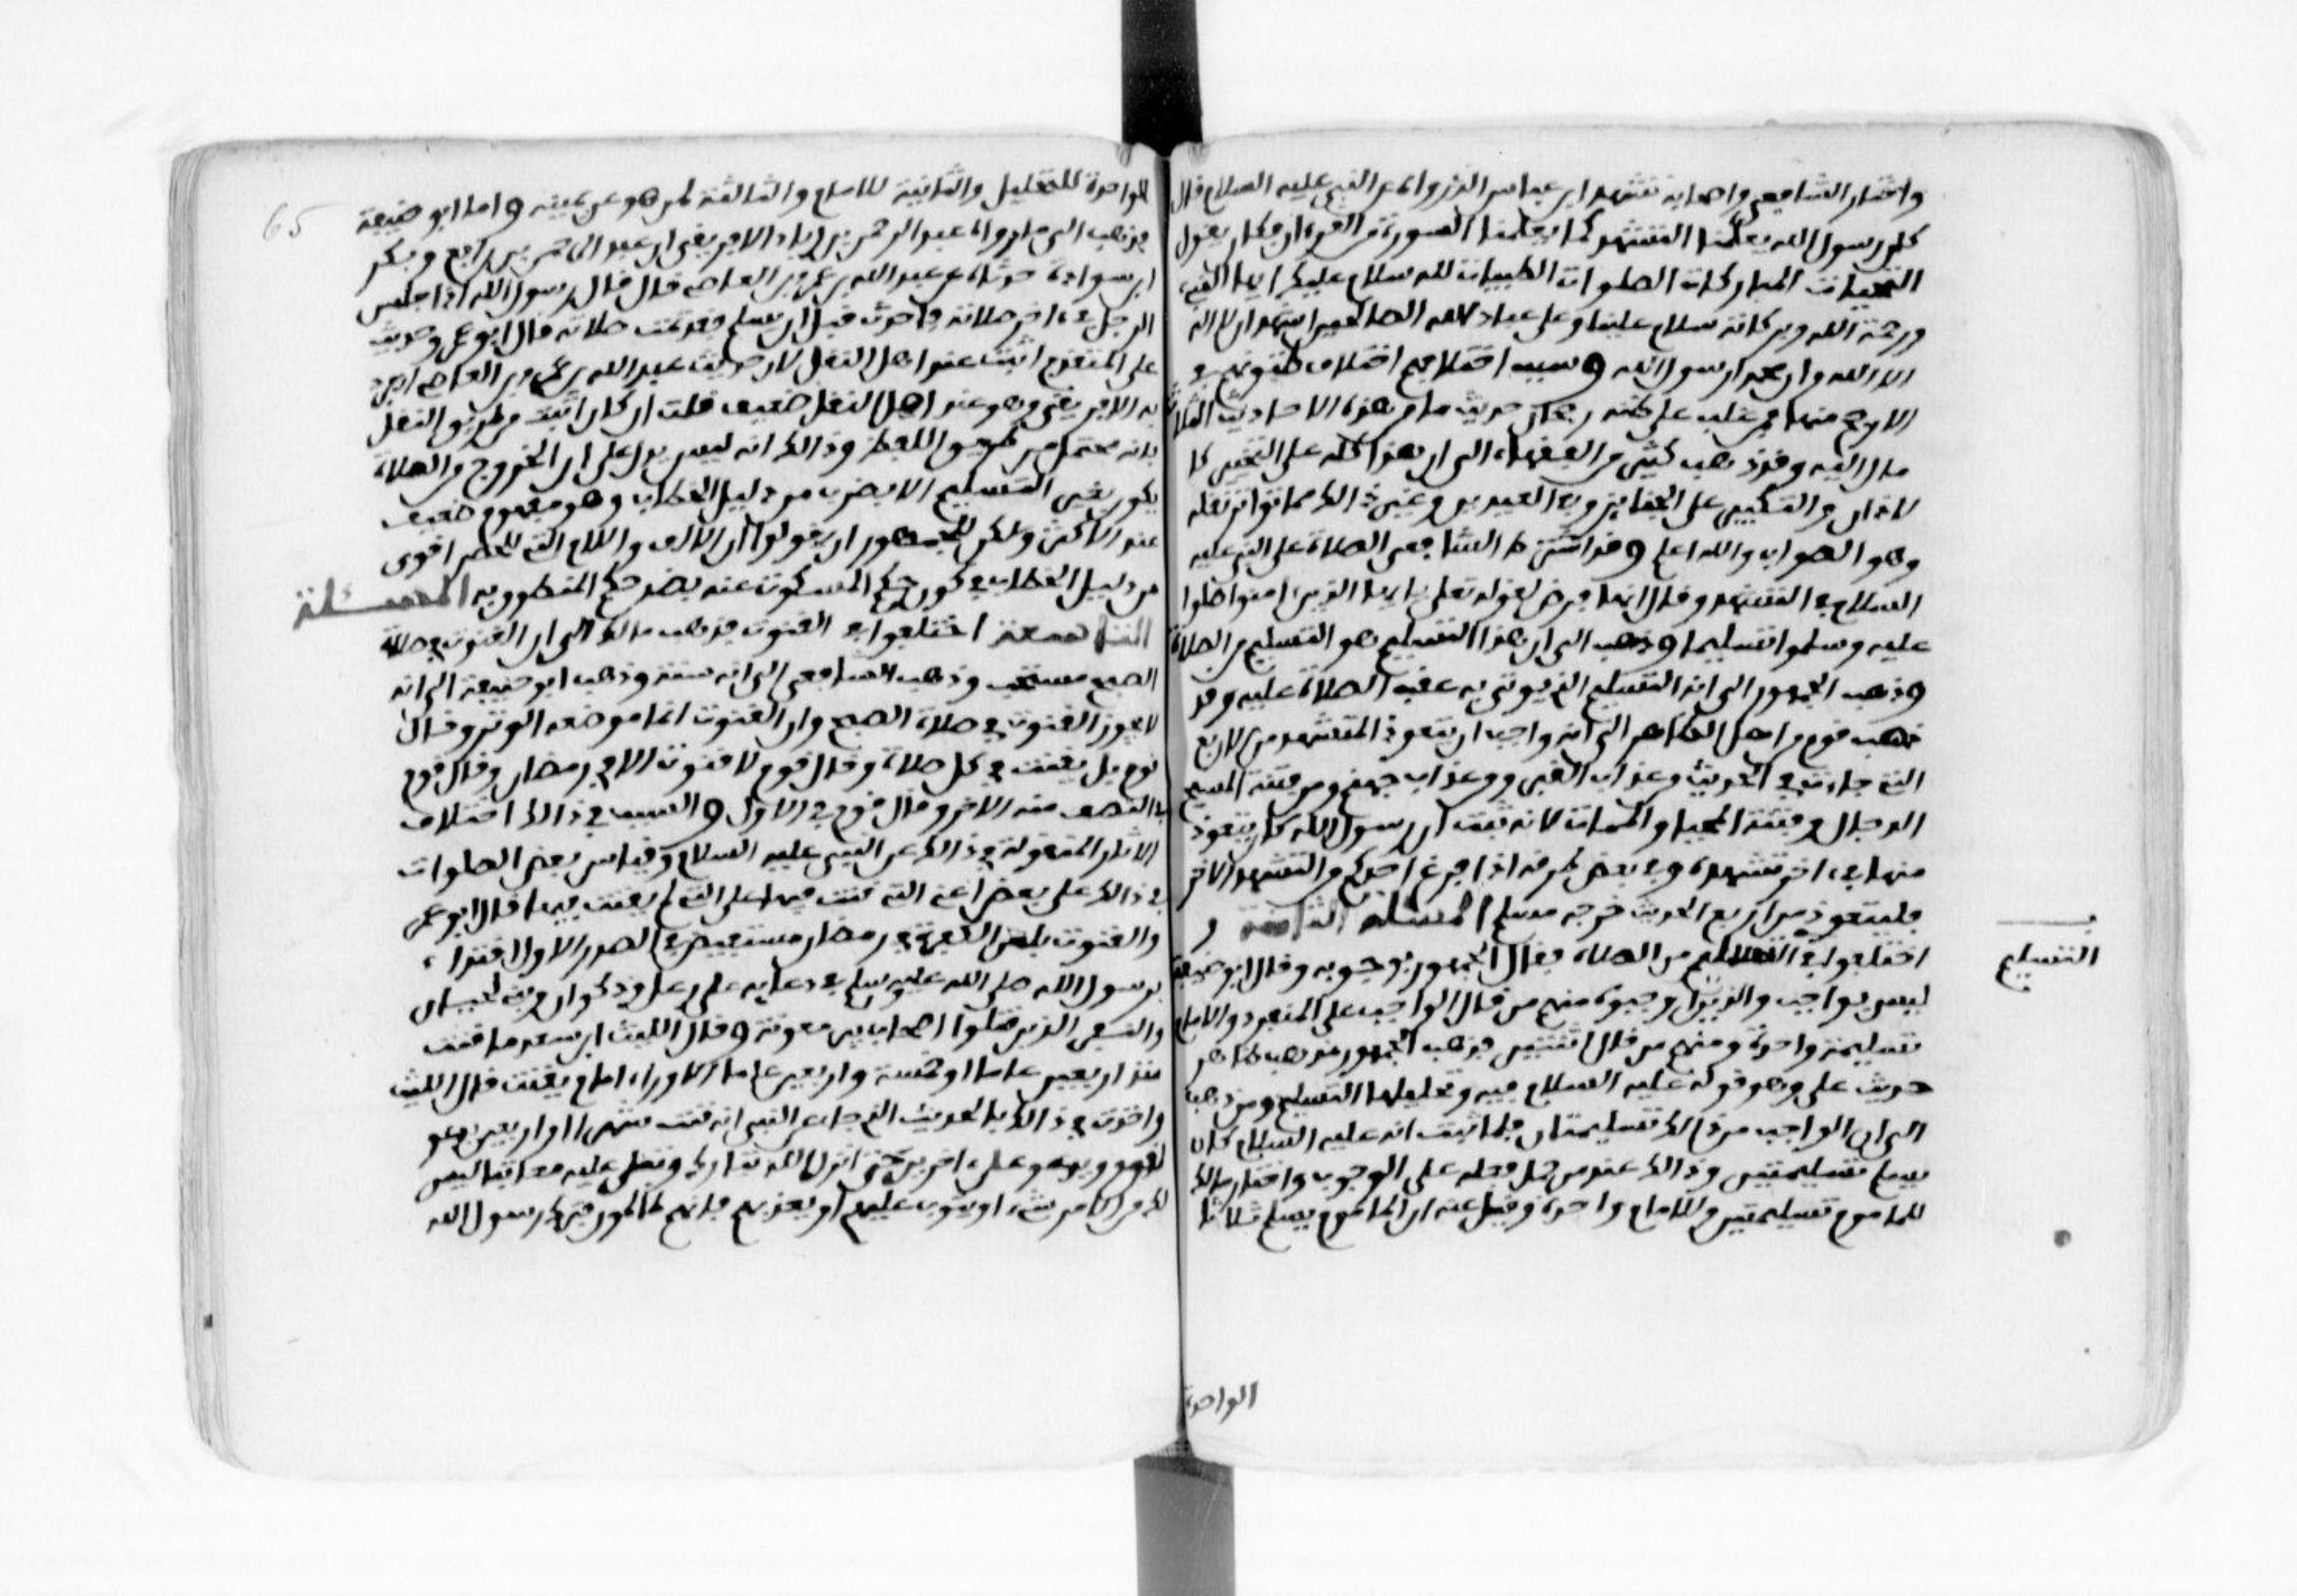 واختار الشافعي واصحابه تشهد ابن عباس الذي رواه عن النبي عليه السلام قال
كان رسول الله يعلمنا التشهد كما يعلمنا السورة من القرءان فكان يقول
التحيات المباركات الصلوات الطيبات لله سلام عليك ايها النبي
ورحمة الله وبركاته سلام علينا وعلى عباد الله الصالحين اشهد ان لا اله
الا الله وان محمدا رسول الله وسبب اختلافهم اختلاف ظنونهم في
الارجح منها فمن غلب على ظنه رجحان حديث ما من هذه الاحاديث الثلاثة
مال اليه وقد ذهب كثير من الفقهاء الى ان هذا كله على التخيير كا
لاذان والتكبير على الجنايز وفي العيدين وغير ذلك مما تواتر نقله
وهو الصواب والله اعلم وقد اشترط الشافعي الصلاة على النبي عليه
السلام في التشهد وقال انها فرض لقوله تعلى يايها الذين امنوا صلوا
عليه وسلموا تسليما وذهب الى ان هذا التسليم هو التسليم من الصلاة
وذهب الجمهور الى انه التسليم الذي يوتى به عقب الصلاة عليه وقد
ذهب قوم من اهل الظاهر الى انه واجب ان يتعوذ المتشهد من الاربع
التي جاءت في الحديث من عذاب القبر ومن عذاب جهنم ومن فتنة المسيح
الدجال ومن فتنة المحيا والممات لانه ثبت ان رسول الله كان يتعوذ
منها في ءاخر تشهده وفي بعض طرقه اذا فرغ احدكم من التشهد الاخر
فليتعوذ من اربع الحديث خرجه مسلم المسئلة الثامنة
اختلفوا في التسليم من الصلاة فقال الجمهور بوجوبه وقال ابو حنيفة
ليس بواجب والذين راوا وجوبه منهم من قال الواجب على المنفرد والامام
تسليمة واحدة ومنهم من قال اثنتين فذهب الجمهور مذهب ظاهر
حديث علي وهو قوله عليه السلام فيه وتحليلها التسليم ومن ذهب
الى ان الواجب من ذالك تسليمتان فلما ثبت انه عليه السلام كان
يسلم تسليمتين وذالك عند من حمل فعله على الوجوب واختار مالك
للماموم تسليمتين وللامام واحدة وقيل عنه ان الماموم يسلم ثلاثا
الواحدة
التسليم
65
الواحدة للتحليل والثانية للامام والثالثة لمن هو عن يمينه واما ابو حنيفة
فذهب الى ما رواه عبد الرحمن بن زياد الافريقي ان عبد الرحمن بن رافع وبكر
ابن سوادة حدثاه عن عبد الله بن عمرو بن العاص قال قال رسول الله اذا جلس
الرجل في ءاخر صلاته فاحدث قبل ان يسلم فقد تمت صلاته قال ابو عمر وحديث
علي المتقدم اثبت عند اهل النقل لان حديث عبد الله بن عمرو بن العاص انفرد
به الافريقي وهو عند اهل النقل ضعيف قلت ان كان اثبت من طريق النقل
فانه محتمل من طريق اللفظ وذالك انه ليس يدل على ان الخروج من الصلاة
يكون بغير التسليم الا بضرب من دليل الخطاب وهو مفهوم ضعيف
عند الاكثر ولكن للجمهور ان يقولوا ان الالف واللام التي للحصر اقوى
من دليل الخطاب في كون حكم المسكوت عنه بضد حكم المنطوق به المسئلة
التاسعة اختلفوا في القنوت فذهب مالك الى ان القنوت في صلاة
الصبح مستحب وذهب الشافعي الى انه سنة وذهب ابو حنيفة الى انه
لا يجوز القنوت في صلاة الصبح وان القنوت انما موضعه الوتر وقال
قوم بل يقنت في كل صلاة وقال قوم لا قنوت الا في رمضان وقال قوم
بل النصف منه الاخر وقال قوم في الاول والسبب في ذالك اختلاف
الاثار المنقولة في ذالك عن النبي عليه السلام وقياس بعض الصلوات
في ذالك على بعض اعني التي قنت فيها على التي لم يقنت فيها قال ابو عمر
والقنوت بلعن الكفرة في رمضان مستفيض في الصدر الاول اقتداء
برسول الله صلى الله عليه وسلم في دعايه على رعل وذكوان وبني لحيان
والنفر الذين قتلوا اصحاب بير معونة وقال الليث ابن سعد ما قنت
منذ اربعين عاما او خمسة واربعين عاما الا وراء امام يقنت قال الليث
واخذت في ذالك بالحديث الذي جاء عن النبي انه قنت شهرا او اربعين يدعو
لقوم ويدعو على ءاخرين حتى انزل الله تبارك وتعلى عليه معاتبا ليس
لك من الامر شيء او يتوب عليهم او يعذبهم فانهم ظالمون فترك رسول الله